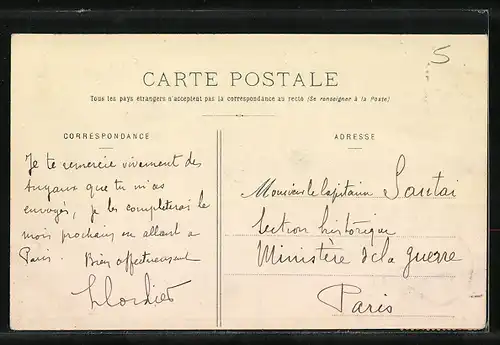 5
CARTE POSTALE
Tous les pays étrangers n'acceptent pas la correspondance au recto (Se renseigner à la Poste)
CORRESPONDANCE
Je te remercie vivement des
tuyaux que tu m'as
envoyés, je les completerai le
mois prochain en allant a
Paris. Bien affectueusement
ADRESSE
Monsieur le Capitaine Sautai
Section historique
Ministère de la guerre
Paris